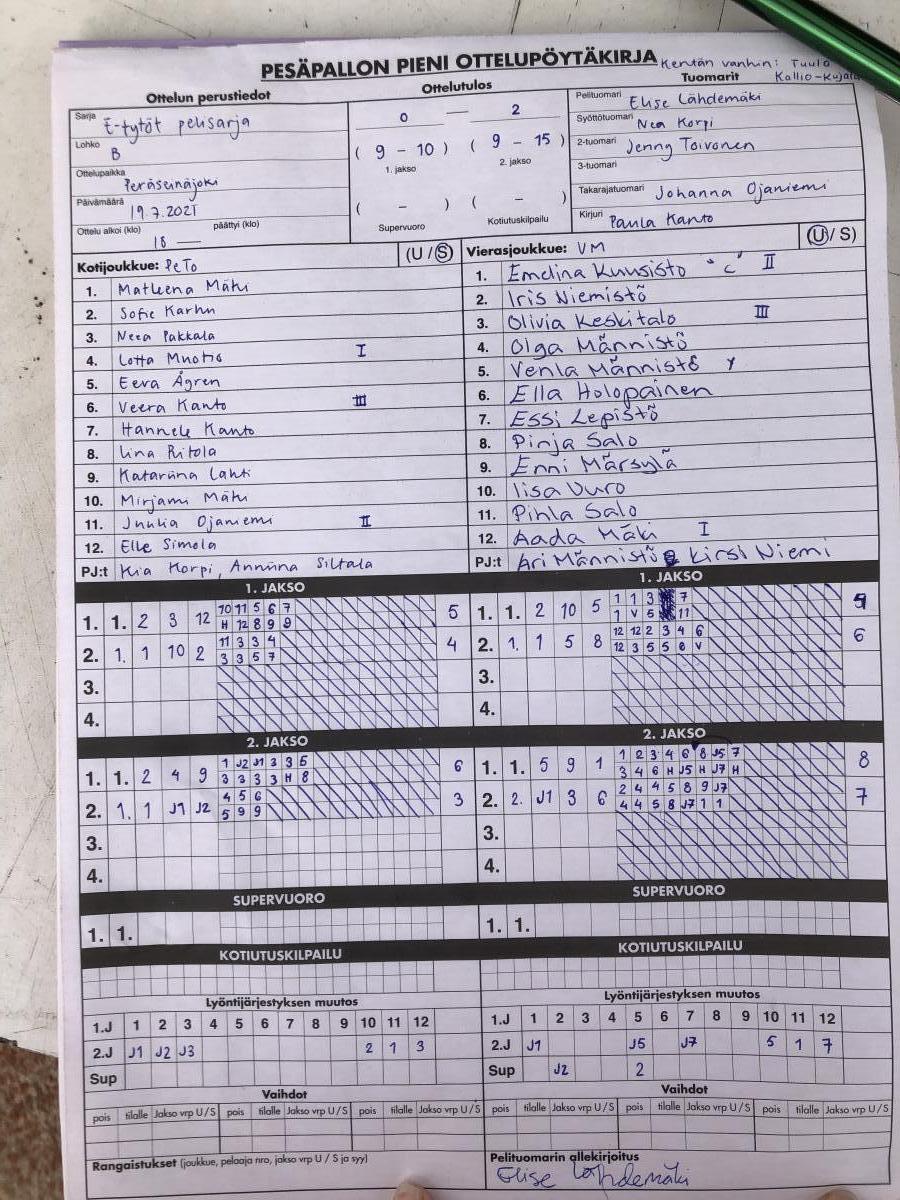 PESÄPALLON PIENI OTTELUPÖYTÄKIRJA Kentän vanhin: Tuula Kallio-Kujala
Ottelun perustiedot
Sarja E-tytöt pelisarja
Lohko B
Ottelupaikka Peräseinäjoki
Päivämäärä 19.7.2021
Ottelu alkoi (klo) 18 — päättyi (klo)
Ottelutulos
0 — 2
( 9 - 10 ) ( 9 - 15 )
1. jakso 2. jakso
( - ) ( - )
Supervuoro Kotiutuskilpailu
Tuomarit
Pelituomari Elise Lähdemäki
Syöttötuomari Nea Korpi
2-tuomari Jenny Toivonen
3-tuomari
Takarajatuomari Johanna Ojaniemi
Kirjuri Paula Kanto
Kotijoukkue: PeTo (U / S)
1. Matleena Mäki
2. Sofie Karhu
3. Neea Pakkala
4. Lotta Muotio I
5. Eeva Ågren
6. Veera Kanto III
7. Hannele Kanto
8. Iina Ritola
9. Katariina Lahti
10. Mirjami Mäki
11. Juulia Ojaniemi II
12. Elle Simola
PJ:t Kia Korpi, Anniina Siltala
Vierasjoukkue: VM (U / S)
1. Emelina Kuusisto "C" II
2. Iris Niemistö
3. Olivia Keskitalo III
4. Olga Männistö
5. Venla Männistö
6. Ella Holopainen
7. Essi Lepistö
8. Pinja Salo
9. Enni Märsylä
10. Iisa Vuro
11. Pihla Salo
12. Aada Mäki I
PJ:t Ari Männistö Kirsi Niemi
1. JAKSO
1. 1. 2 3 12 10 11 5 6 7 5
H 12 8 9 9
2. 1. 1 10 2 11 3 3 4 4
3 3 5 7
3.
4.
1. JAKSO
1. 1. 2 10 5 1 1 3 7
1 V 5 11
2. 1. 1 5 8 12 12 2 3 4 6 6
12 3 5 5 6 V
3.
4.
2. JAKSO
1. 1. 2 4 9 1 J2 J1 3 3 5 6
3 3 3 3 H 8
2. 1. 1 J1 J2 4 5 6 3
5 9 9
3.
4.
2. JAKSO
1. 1. 5 9 1 1 2 3 4 6 8 J5 7 8
3 4 6 H J5 H J7 H
2. 2. J1 3 6 2 4 4 5 8 9 J7 7
4 4 5 8 J7 1 1
3.
4.
SUPERVUORO
1. 1.
SUPERVUORO
1. 1.
KOTIUTUSKILPAILU
KOTIUTUSKILPAILU
Lyöntijärjestyksen muutos
1.J 1 2 3 4 5 6 7 8 9 10 11 12
2.J J1 J2 J3 2 1 3
Sup
Lyöntijärjestyksen muutos
1.J 1 2 3 4 5 6 7 8 9 10 11 12
2.J J1 J5 J7 5 1 7
Sup J2 2
Vaihdot
pois tilalle Jakso vrp U / S pois tilalle Jakso vrp U / S pois tilalle Jakso vrp U / S
Vaihdot
pois tilalle Jakso vrp U / S pois tilalle Jakso vrp U / S pois tilalle Jakso vrp U / S
Rangaistukset (joukkue, pelaaja nro, jakso vrp U / S ja syy)
Pelituomarin allekirjoitus
Elise Lähdemäki